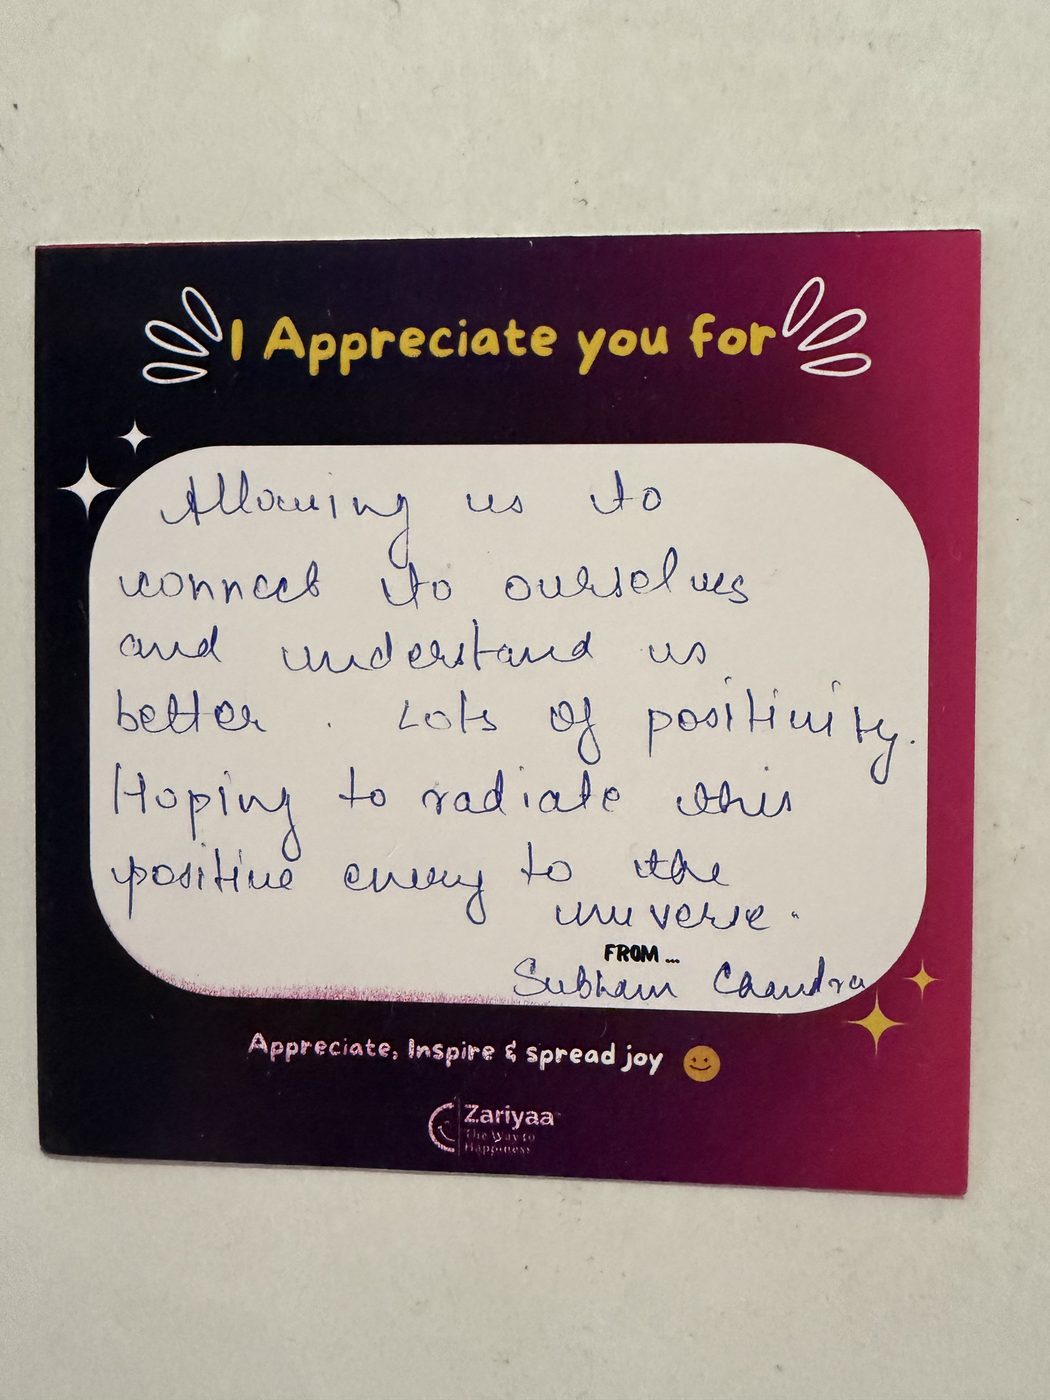 I Appreciate you for
Allowing us to
connect to ourselves
and understand us
better. Lots of positivity.
Hoping to radiate this
positive energy to the
universe.
FROM...
Subham Chandra
Appreciate, Inspire & spread joy
Zariyaa
The Way to
Happiness